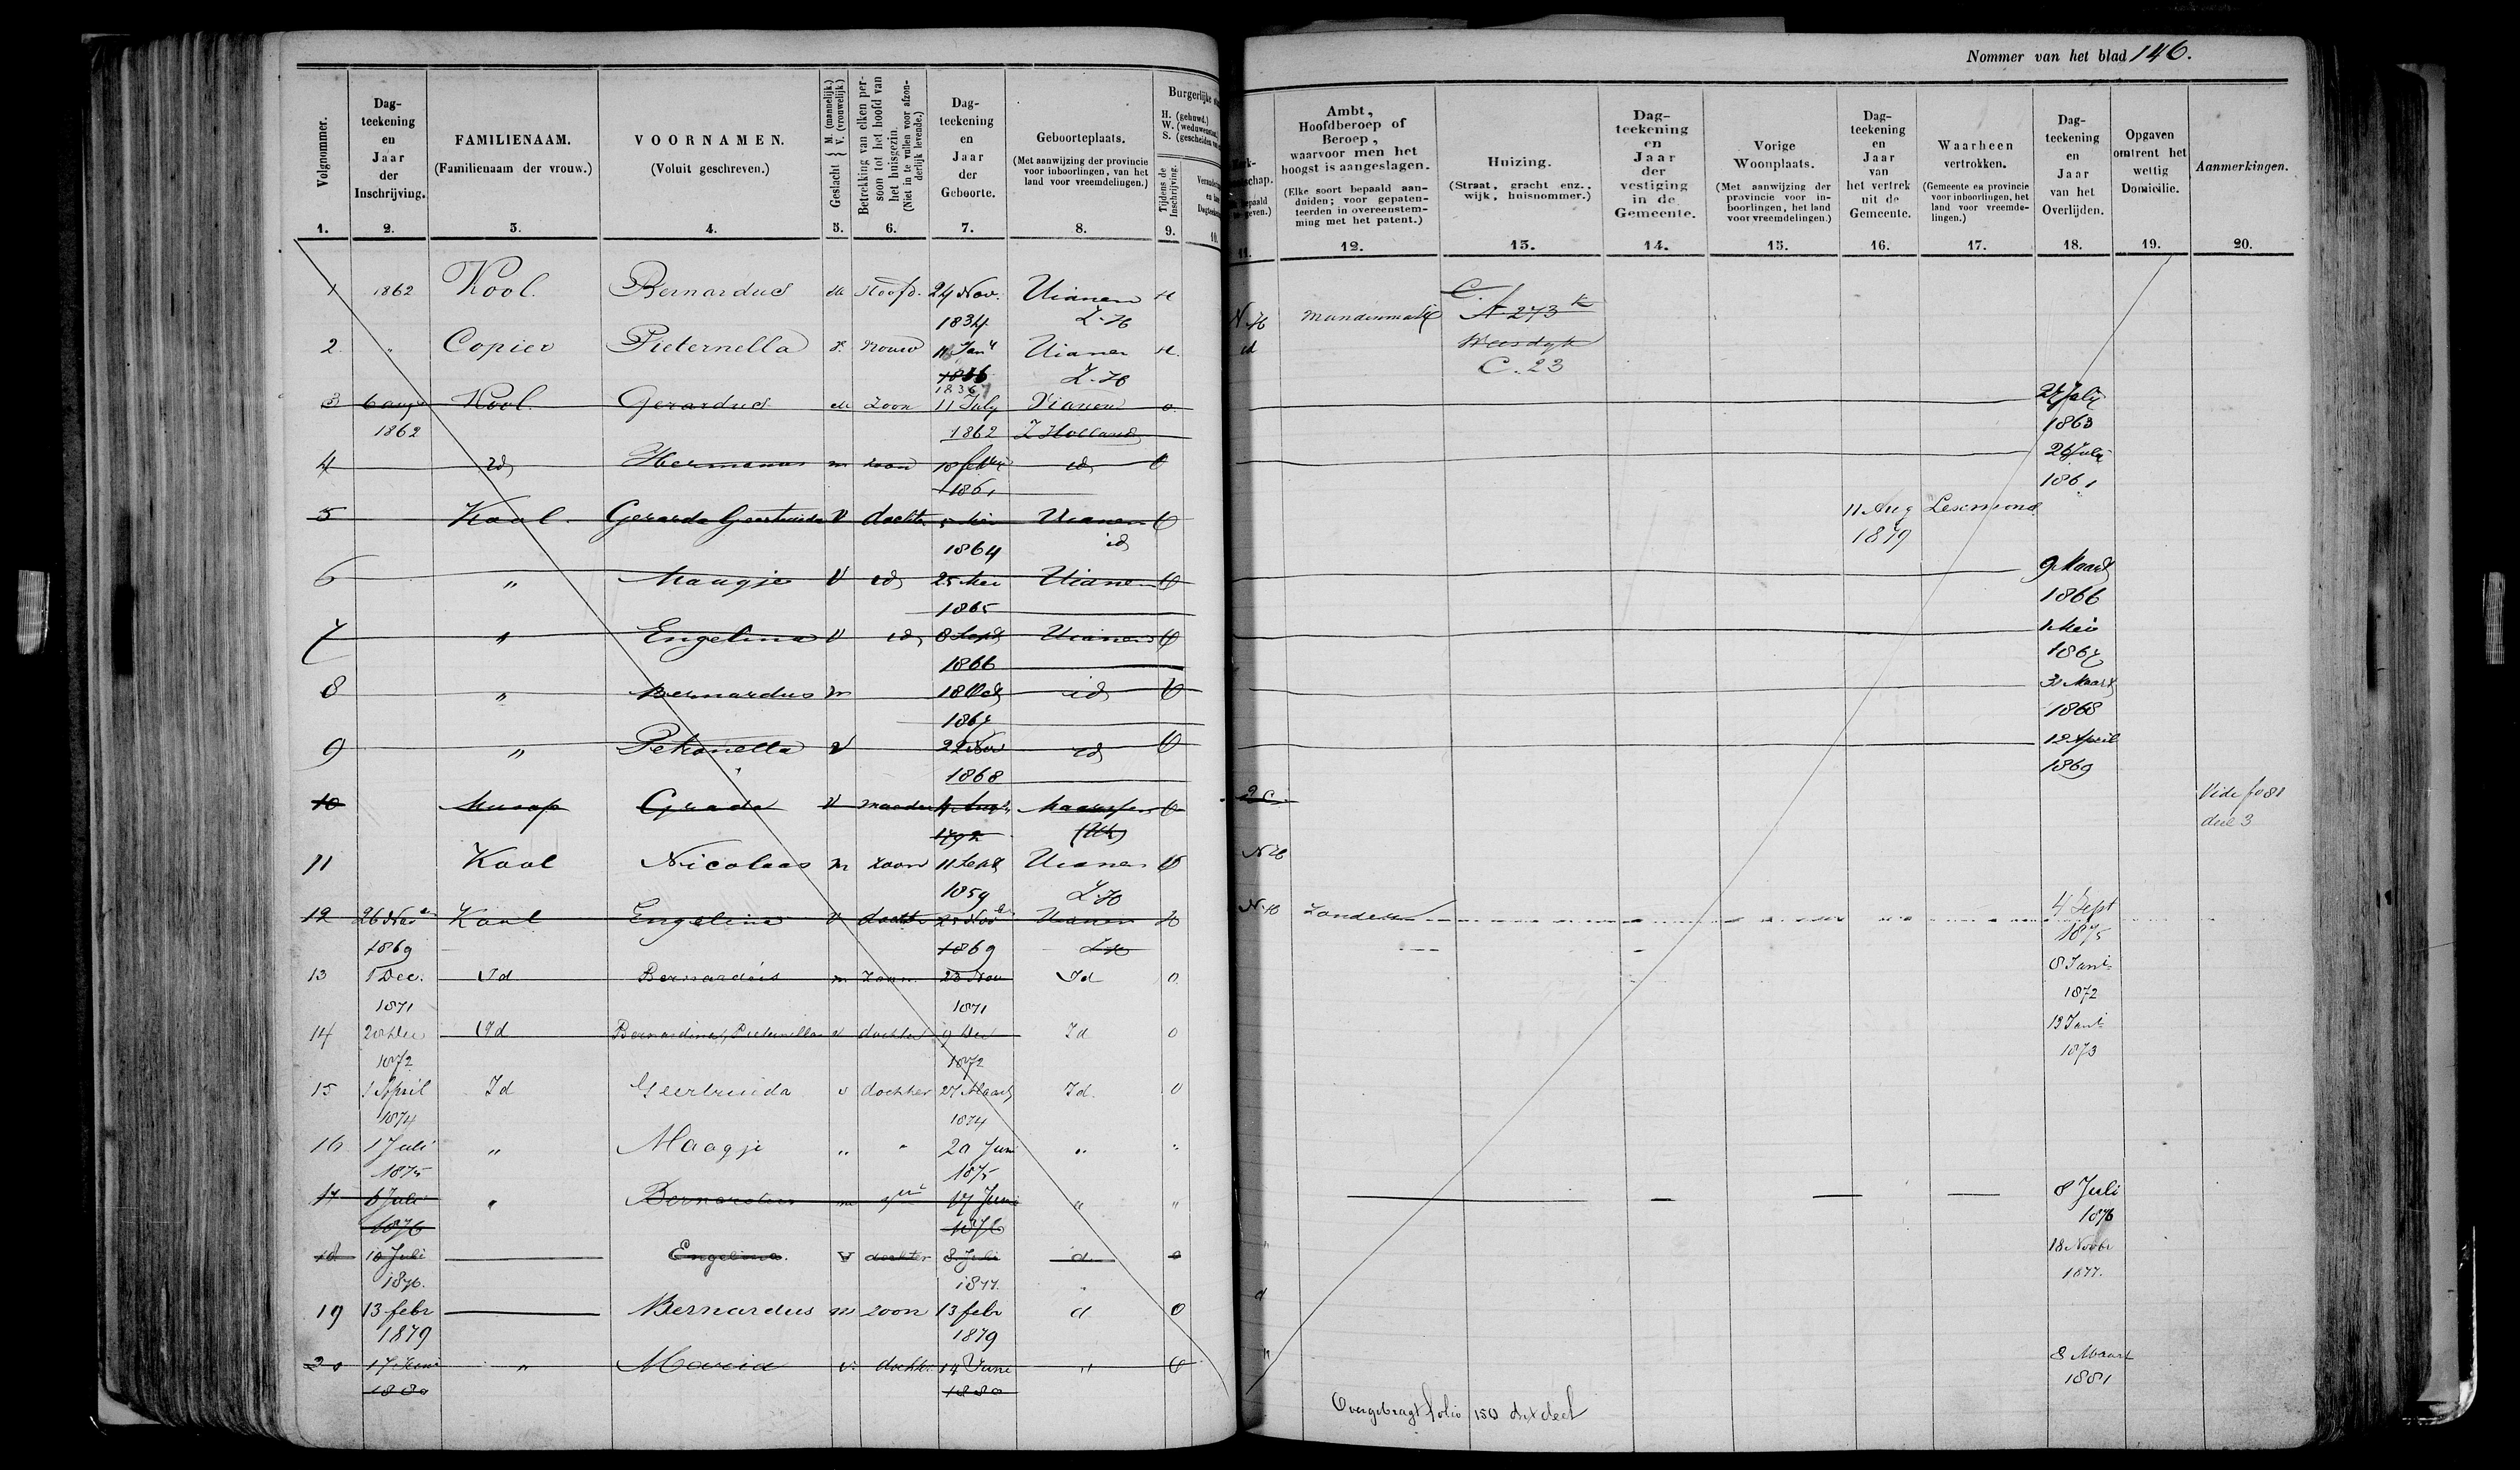 Nommer van het blad 146.
Volgnommer.
1.
Dag-
teekening
en
Jaar
der
Inschrijving.
2.
FAMILIENAAM.
(Familienaam der vrouw.)
3.
VOORNAMEN.
(Voluit geschreven.)
4.
Geslacht { M. (mannelijk.) V. (vrouwelijk.) }
5.
Betrekking van elken per-
soon tot het hoofd van
het huisgezin.
(Niet in te vullen voor afzon-
derlijk levende.)
6.
Dag-
teekening
en
Jaar
der
Geboorte.
7.
Geboorteplaats.
(Met aanwijzing der provincie
voor inboorlingen, van het
land voor vreemdelingen.)
8.
Burgerlijke
H. (gehuwd.)
W. (weduwe
S. (gescheiden
Tijdens de
Inschrijving.
9.
10.
11.
Ambt,
Hoofdberoep of
Beroep,
waarvoor men het
hoogst is aangeslagen.
(Elke soort bepaald aan-
duiden; voor gepaten-
teerden in overeenstem-
ming met het patent.)
12.
Huizing.
(Straat, gracht enz.,
wijk, huisnommer.)
13.
Dag-
teekening
en
Jaar
der
vestiging
in de
Gemeente.
14.
Vorige
Woonplaats.
(Met aanwijzing der
provincie voor in-
boorlingen, het land
voor vreemdelingen.)
15.
Dag-
teekening
en
Jaar
van
het vertrek
uit de
Gemeente.
16.
Waarheen
vertrokken.
(Gemeente en provincie
voor inboorlingen, het
land voor vreemde-
lingen.)
17.
Dag-
teekening
en
Jaar
van het
Overlijden.
18.
Opgaven
omtrent het
wettig
Domicilie.
19.
Aanmerkingen.
20.
1 1862 Kool. Bernardus M Hoofd. 24 Nov. Vianen H
1834 Z-H
N.H C A 273
2. " Copier Pieternella V. Vrouw 11 Jan Vianen H.
1836 Z-H
id C. 23
3 6 aug Kool. Gerardus M Zoon 11 July Vianen o. 24 July
1862 1862 Z Holland 1863
4 id Hermanus m zoon 18 id O 26 July
1861 1861
5 Kool. Gerarda Geertruida V dochter 5 Vianen O 11 Aug Lexmond
1864 id 1879
6 " Maagje V id 25 Mei Vianen O 9 Maart
1865 1866
7 " Engelina V id 8 Sept Vianen O 1 Mei
1866 1867
8 " Bernardus m 18 Oct id O 3 Maart
1867 1868
9 " Petronella V 22 Nov id O 12 April
1868 1869
10 Grada V moeder O Vide fo 81
1792 (Ut) deel 3
11 Kool Nicolaas m zoon 11 Sept Vianen O NH
1859 Z-H
12 26 Nov Kool Engelina V dochter 25 Nov Vianen O N-H 4 Sept
1869 1869 ZH 1875
13 1 Dec. Id Bernardus m Zoon 23 Nov Id O. 8 Jani
1871 1871 1872
14 20 Dec Id Bernardina, Pieternella V dochter 9 Dec Id O 13 Jani
1872 1872 1873
15 1 April Id Geertruida v dochter 27 Maart Id. O
1874 1874
16 1 Juli " Maagje " " 20 Juni " "
1875 1875
17 6 Juli " Bernardus m 17 Juni " " 8 Juli
1876 1876 1876
18 10 Juli Engelina. V dochter 8 Juli d o 18 Novbr
1876. 1877. 1877.
19 13 febr Bernardus m zoon 13 febr d O d
1879 1879
20 17 Juni " Maria v. docht. 14 Juni " O " 8 Maart
1880 1880 1881
Overgebragt folio 150 deel